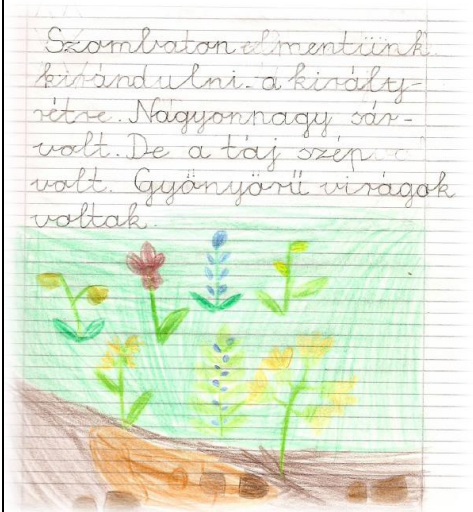 Szombaton elmentünk
kirándulni a király-
rétre. Nagyonnagy sár-
volt. De a táj szép
volt. Gyönyörű virágok
voltak.